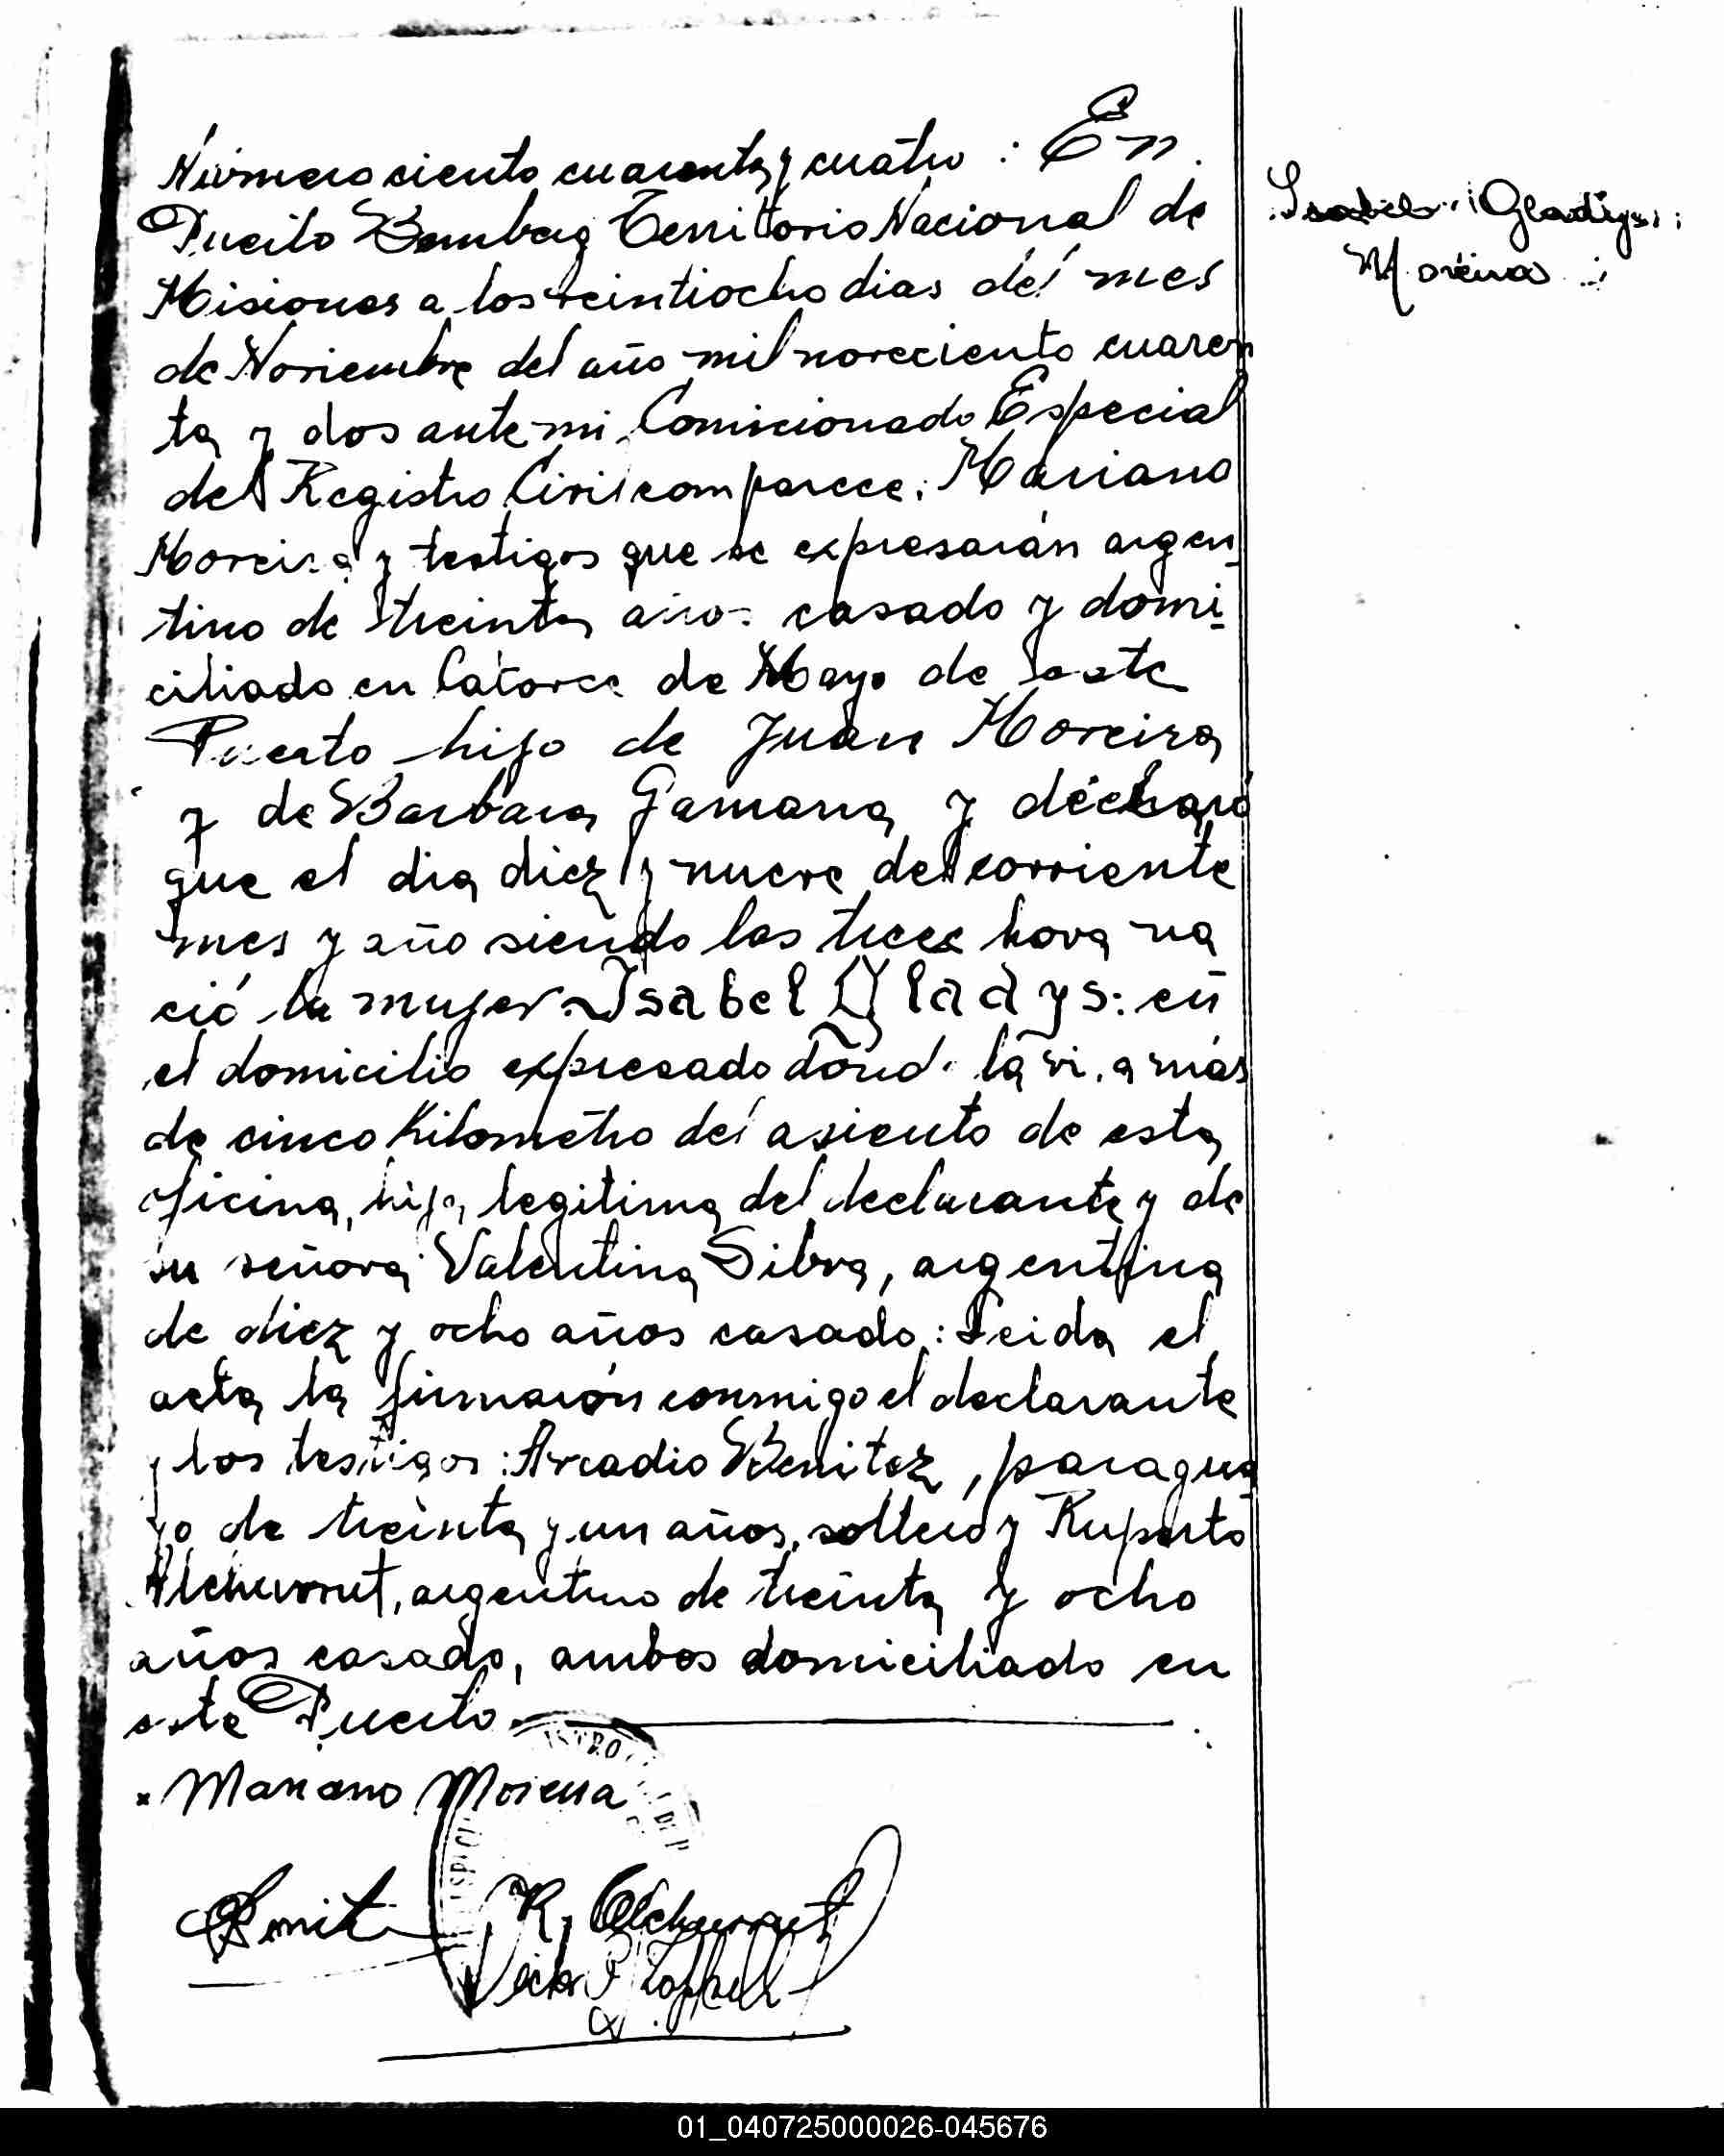 Número ciento cuarenta y cuatro : En
Puerto Bemberg Territorio Nacional de
Misiones a los veintiocho dias del mes
de Noviembre del año mil noveciento cuaren
ta y dos ante mi Comicionado Especial
del Registro Civil comparece: Mariano
Moreira y testigos que se expresarán argen-
tino de treinta años casado y domi-
ciliado en Catorce de Mayo de este
Puerto hijo de Juan Moreira
y de Barbara Gamarra y declaró
que el dia diez y nueve del corriente
mes y año siendo las trece hora na
ció la mujer Isabel Gladys: en
el domicilio expresado donde la vi, a más
de cinco Kilometro del asiento de esta
oficina, hija legitima del declarante y de
su señora Valentina Silva, argentina
de diez y ocho años casado: Leida el
acta la firmaron conmigo el declarante
y los testigos: Arcadio Benitez, paragua
yo de treinta y un años, soltero y Ruperto
Alchurrut, argentino de treinta y ocho
años casado, ambos domiciliado en
este Puerto
x Mariano Moreira
R. Alchurrut
Isabel Gladys
Moreira
01_040725000026-045676